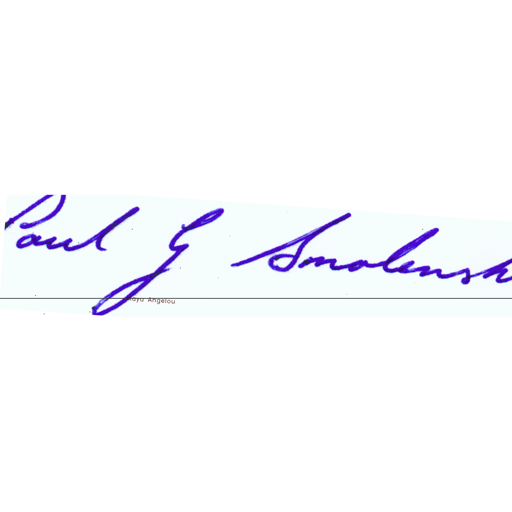 Paul G Smolensk
Angelou